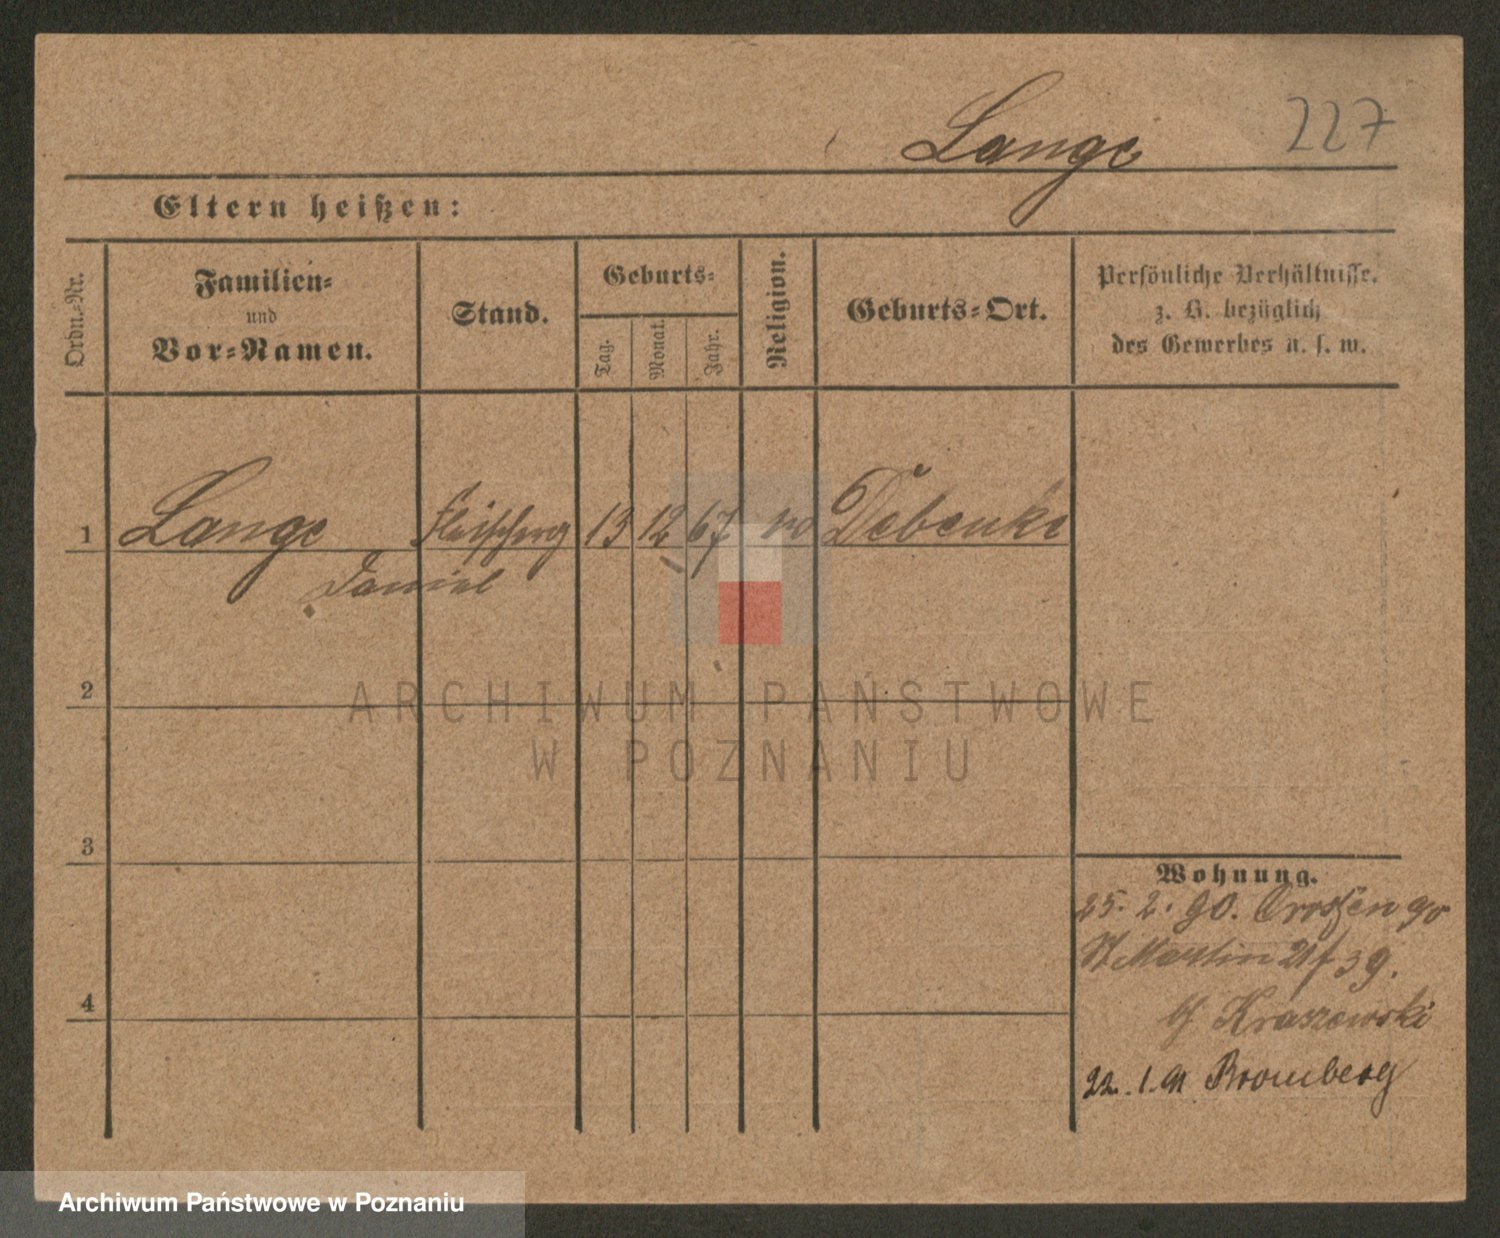 Lange 227
Eltern heißen:
Ordn.-Nr.
Familien-
und
Vor-Namen.
Stand.
Geburts-
Tag.
Monat.
Jahr.
Religion.
Geburts-Ort.
Persönliche Verhältnisse.
z. B. bezüglich
des Gewerbes u. s. w.
1 Lange 13 12 67 Debenke
Daniel
2
ARCHIWUM PAŃSTWOWE
W POZNANIU
3
Wohnung.
25. 2. 90. 90
St Martin 39.
Kraszewski
4
22. 1. 91 Bromberg
Archiwum Państwowe w Poznaniu